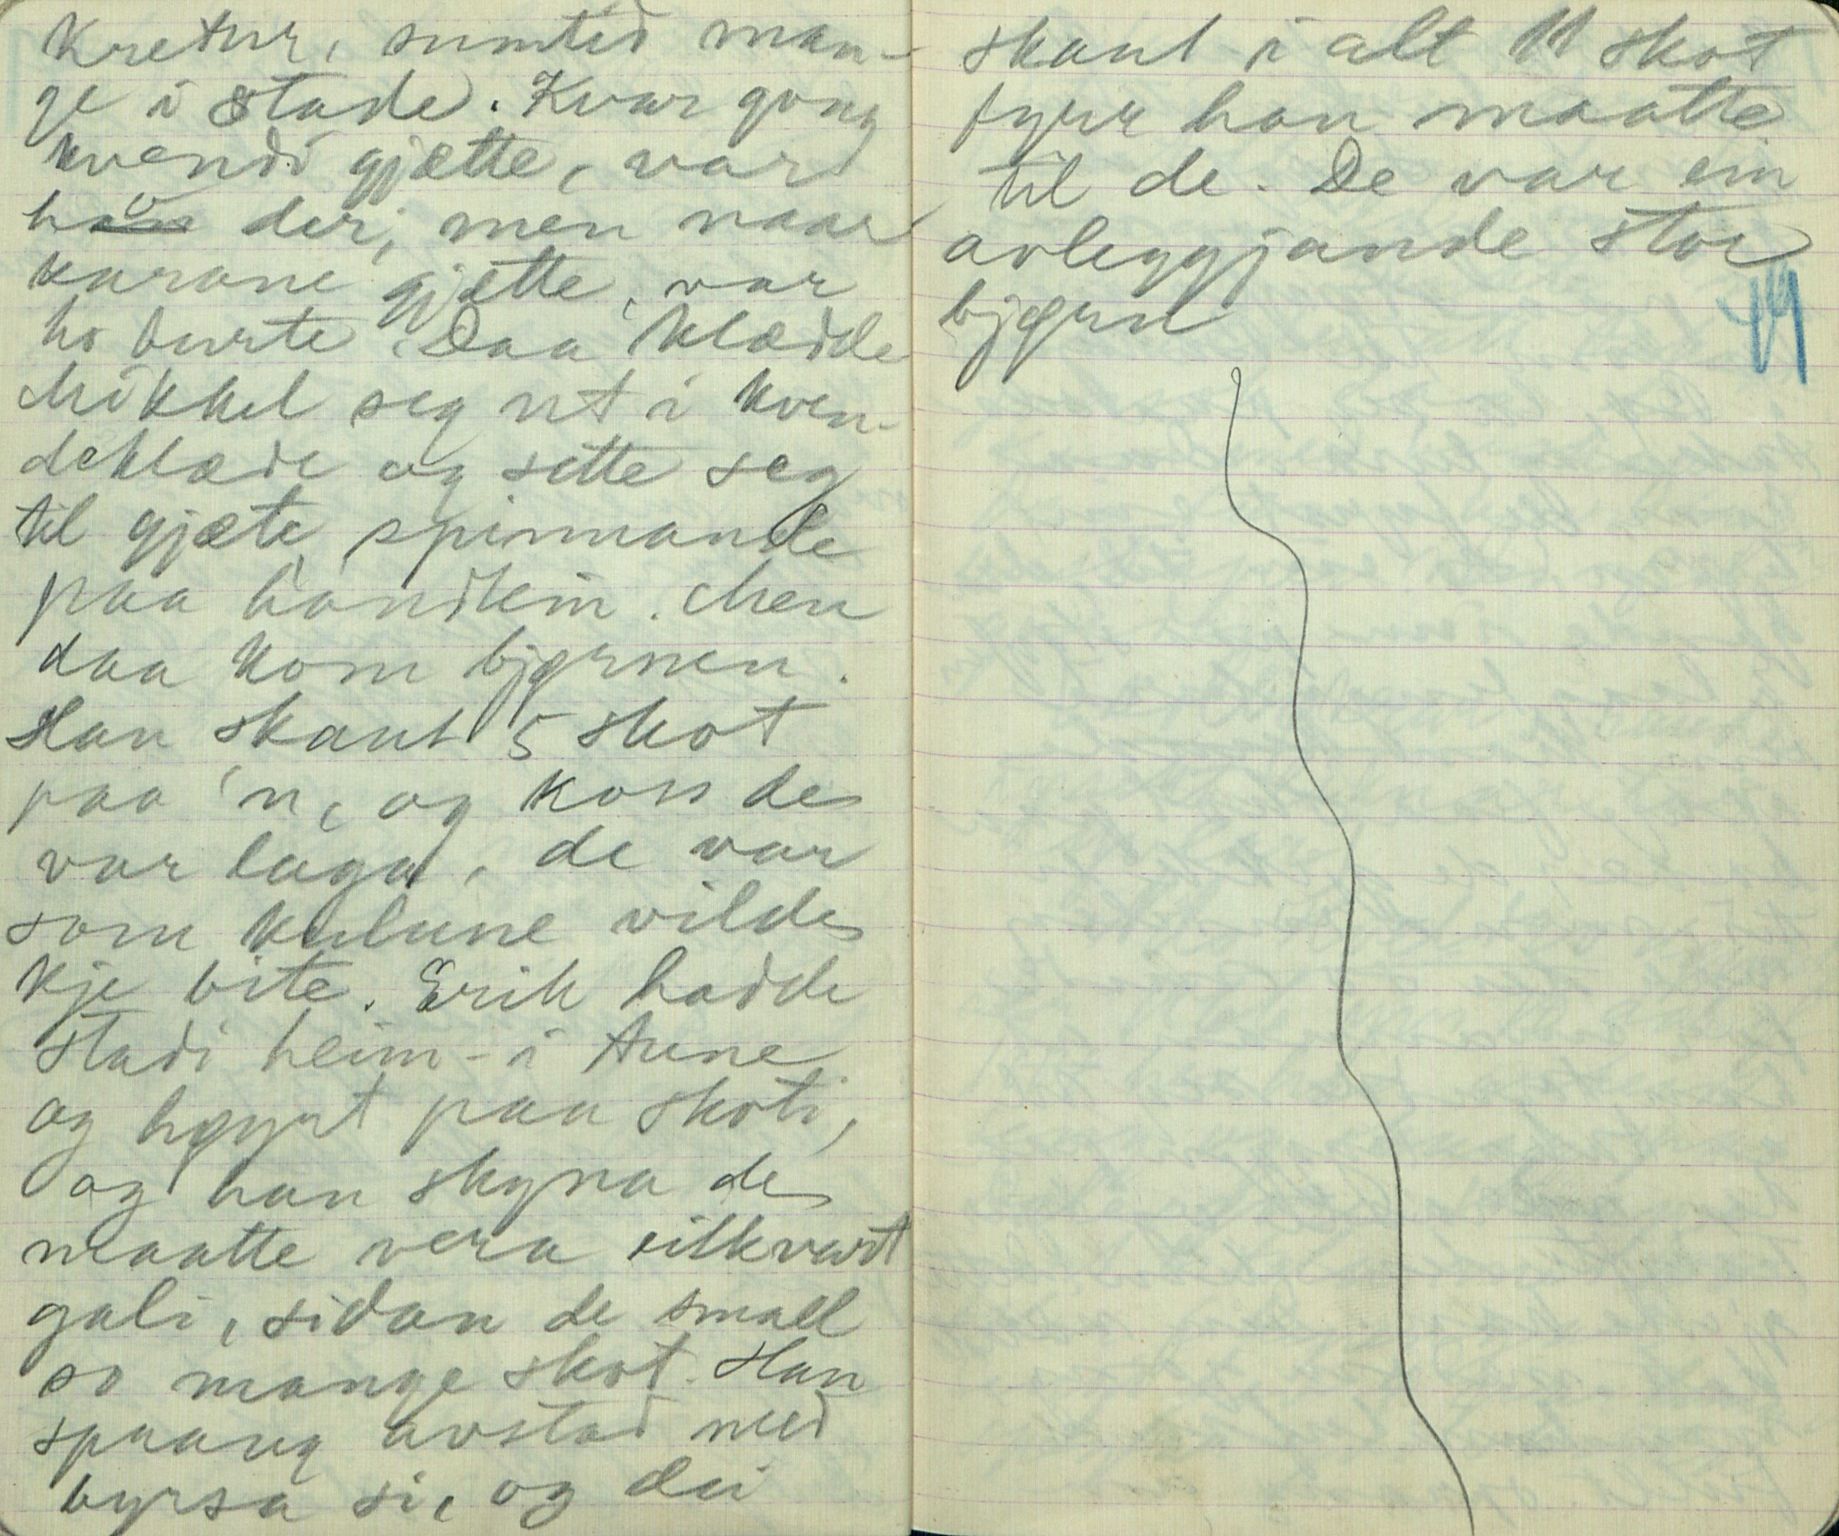 Kretur, sumtid man-
ge i stade. Kvar gong
kvendi gjætte, var
ho der, men naar
karane gjætte, var
ho burte. Daa klædde
Mikkel seg ut i kven-
deklæde og sette seg
til gjæte, spinnande
paa handtein. Men
daa kom bjørnen.
Han skaut 5 skot
paa 'n, og koss de
var laga, de var
som kulune vilde
kje bite. Erik hadde
stadi heim-i Aune
og høyrt paa skoti,
og han skyna de
maatte vera eitkvart
gali, sidan de small
so mange skot. Han
spraang avstad med
byrsa si, og dei
skaut i alt 11 skot
fyrr han maatte
til de. De var ein
avleggjande stor
bjørn
49